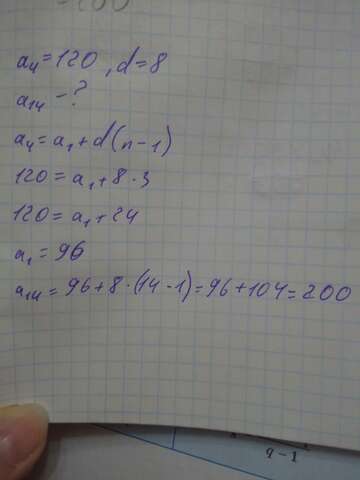 a₄=120, d=8
a₁₄-?
a₄=a₁+d(n-1)
120=a₁+8·3
120=a₁+24
a₁=96
a₁₄=96+8·(14-1)=96+104=200
q-1